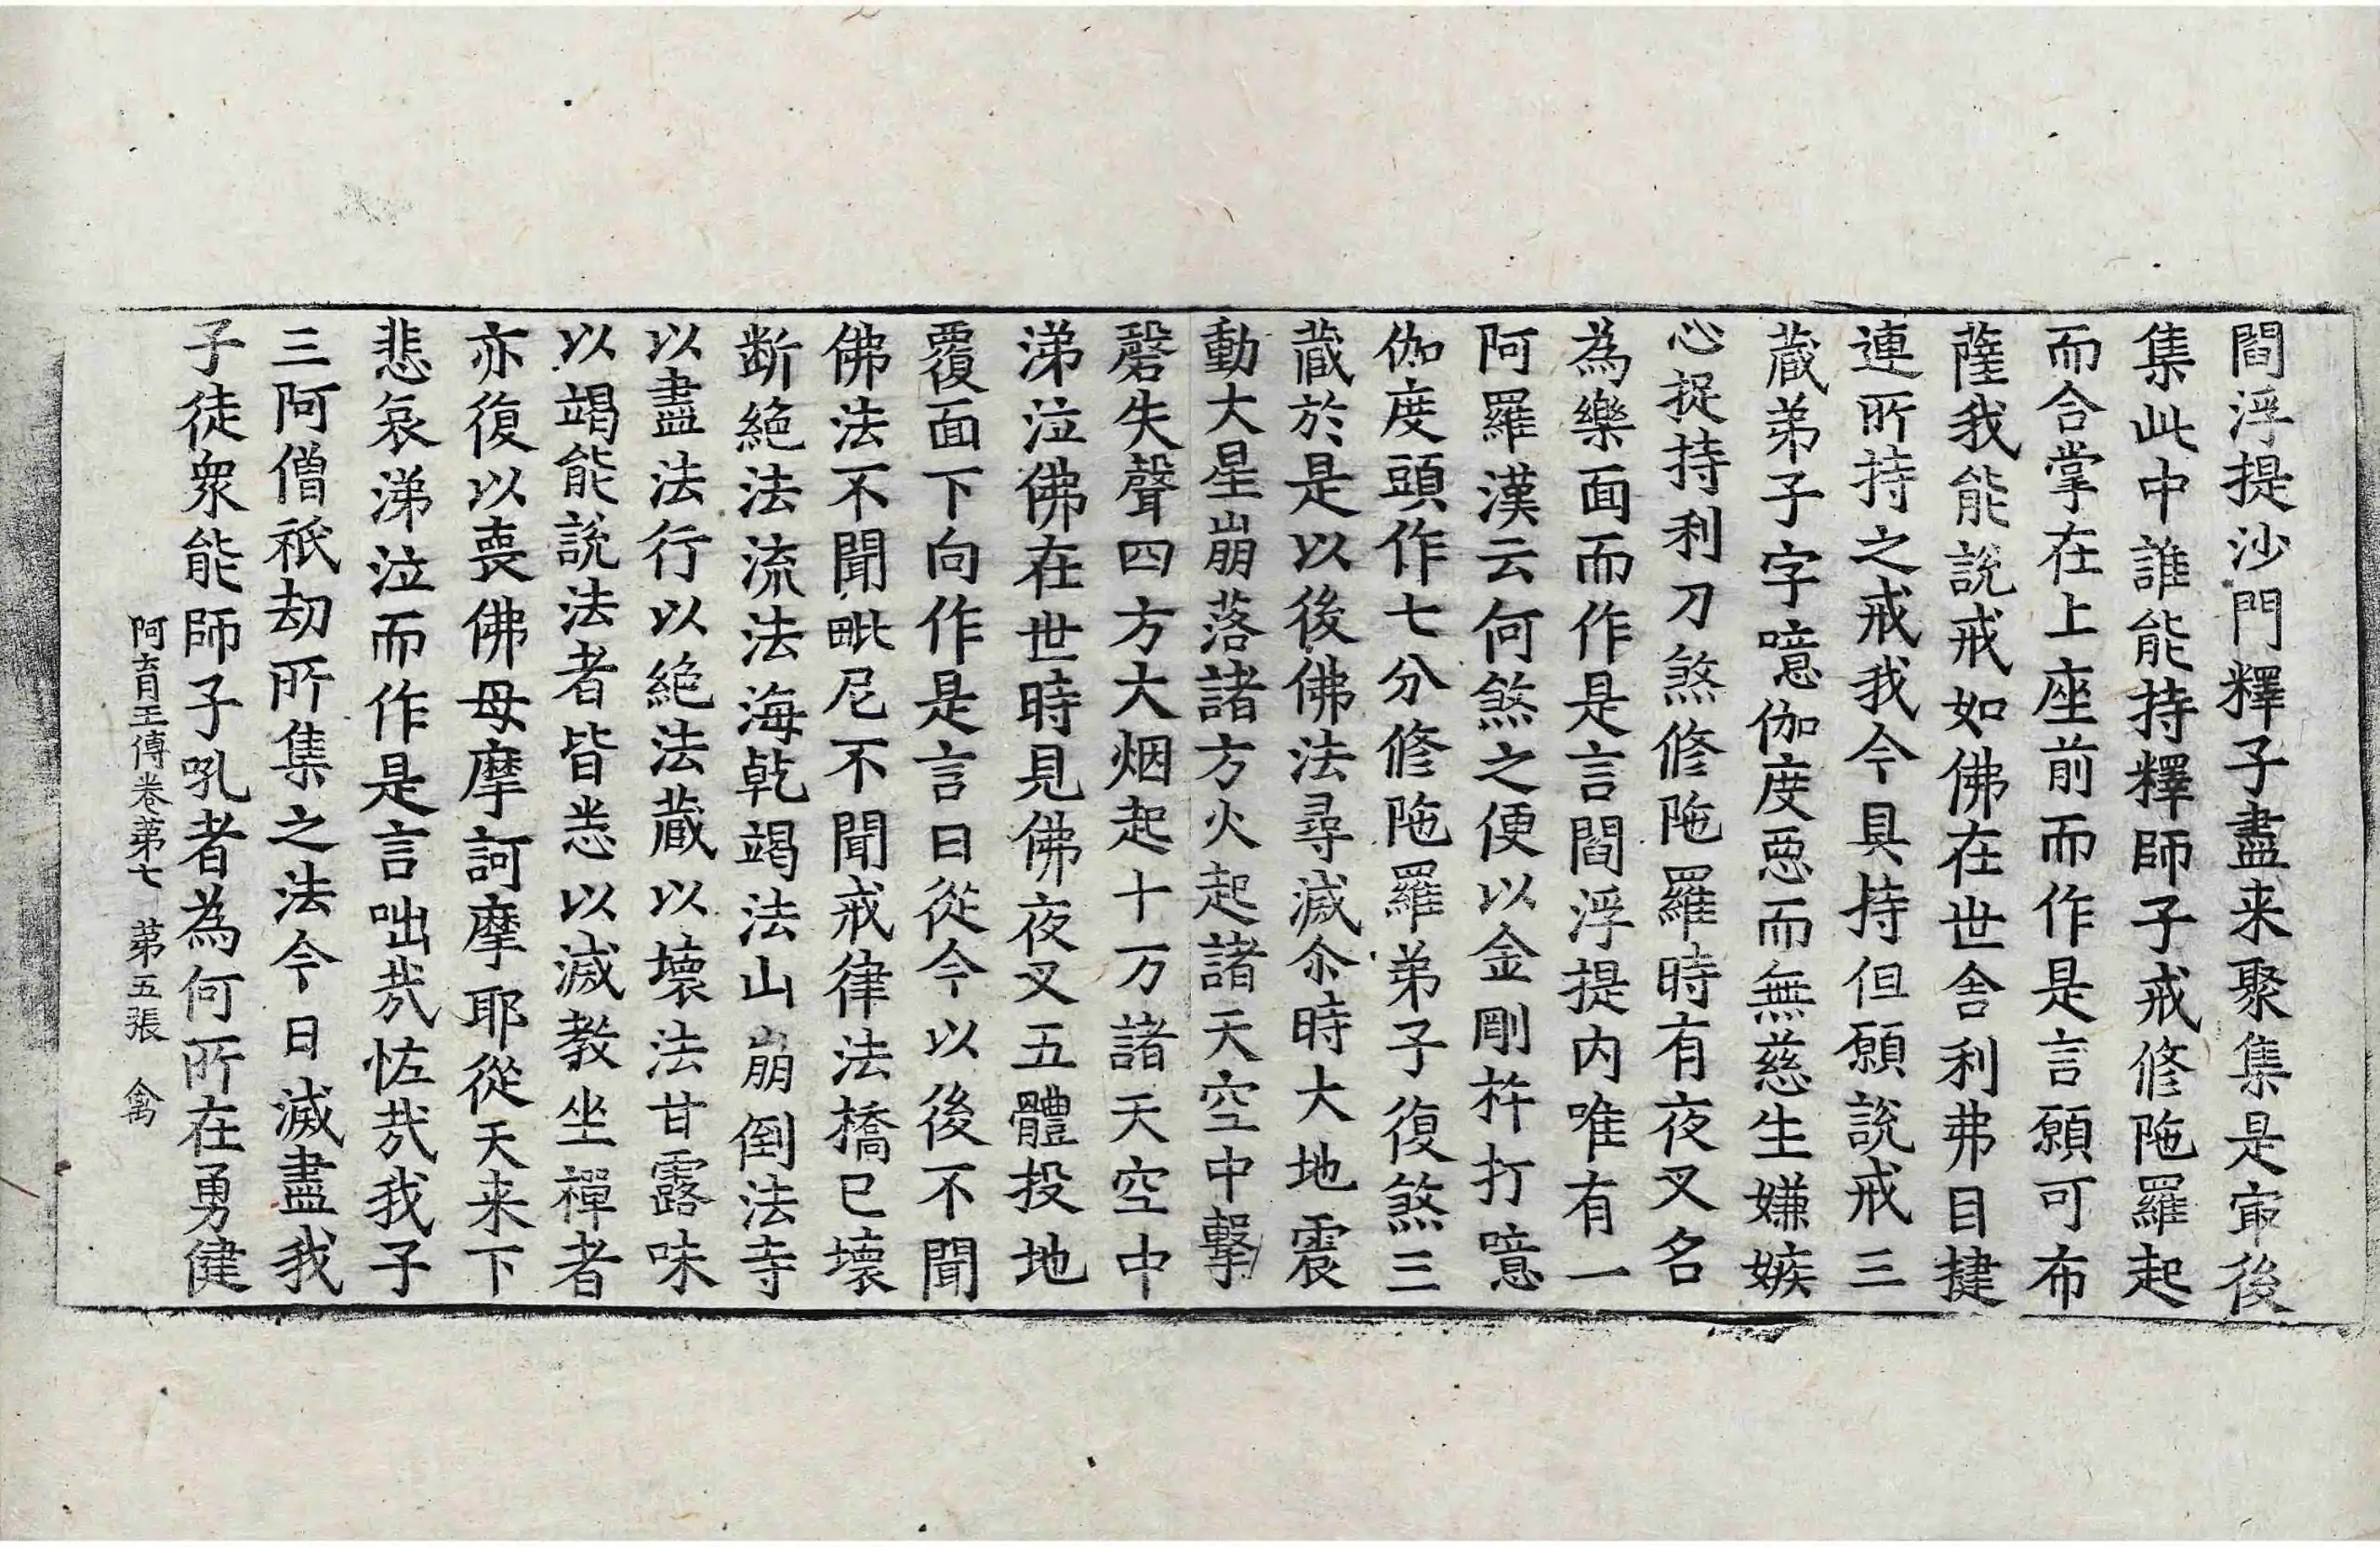 閻浮提沙門釋子盡来聚集是㝡後
集此中誰能持釋師子戒修陁羅起
而合掌在上座前而作是言願可布
薩我能說戒如佛在世舍利弗目揵
連所持之戒我今具持但願說戒三
蔵弟子字噫伽度𢙣而無慈生嫌嫉
心捉持利刀煞修陁羅時有夜叉名
為樂面而作是言閻浮提内唯有一
阿羅漢云何煞之便以金剛杵打噫
伽度頭作七分修陁羅弟子復煞三
蔵於是以後佛法尋滅尒時大地震
動大星崩落諸方火起諸天空中擊
磬失聲四方大烟起十万諸天空中
涕泣佛在世時見佛夜叉五體投地
覆面下向作是言曰從今以後不聞
佛法不聞毗尼不聞戒律法橋已壞
断絶法流法海乾竭法山崩倒法寺
以盡法行以絶法蔵以壞法甘露味
以竭能說法者皆悉以滅教坐禪者
亦復以喪佛母摩訶摩耶從天来下
悲哀涕泣而作是言咄㢤恠㢤我子
三阿僧祇劫所集之法今日滅盡我
子徒衆能師子吼者為何所在勇健
阿育王傳卷第七　第五張　禽